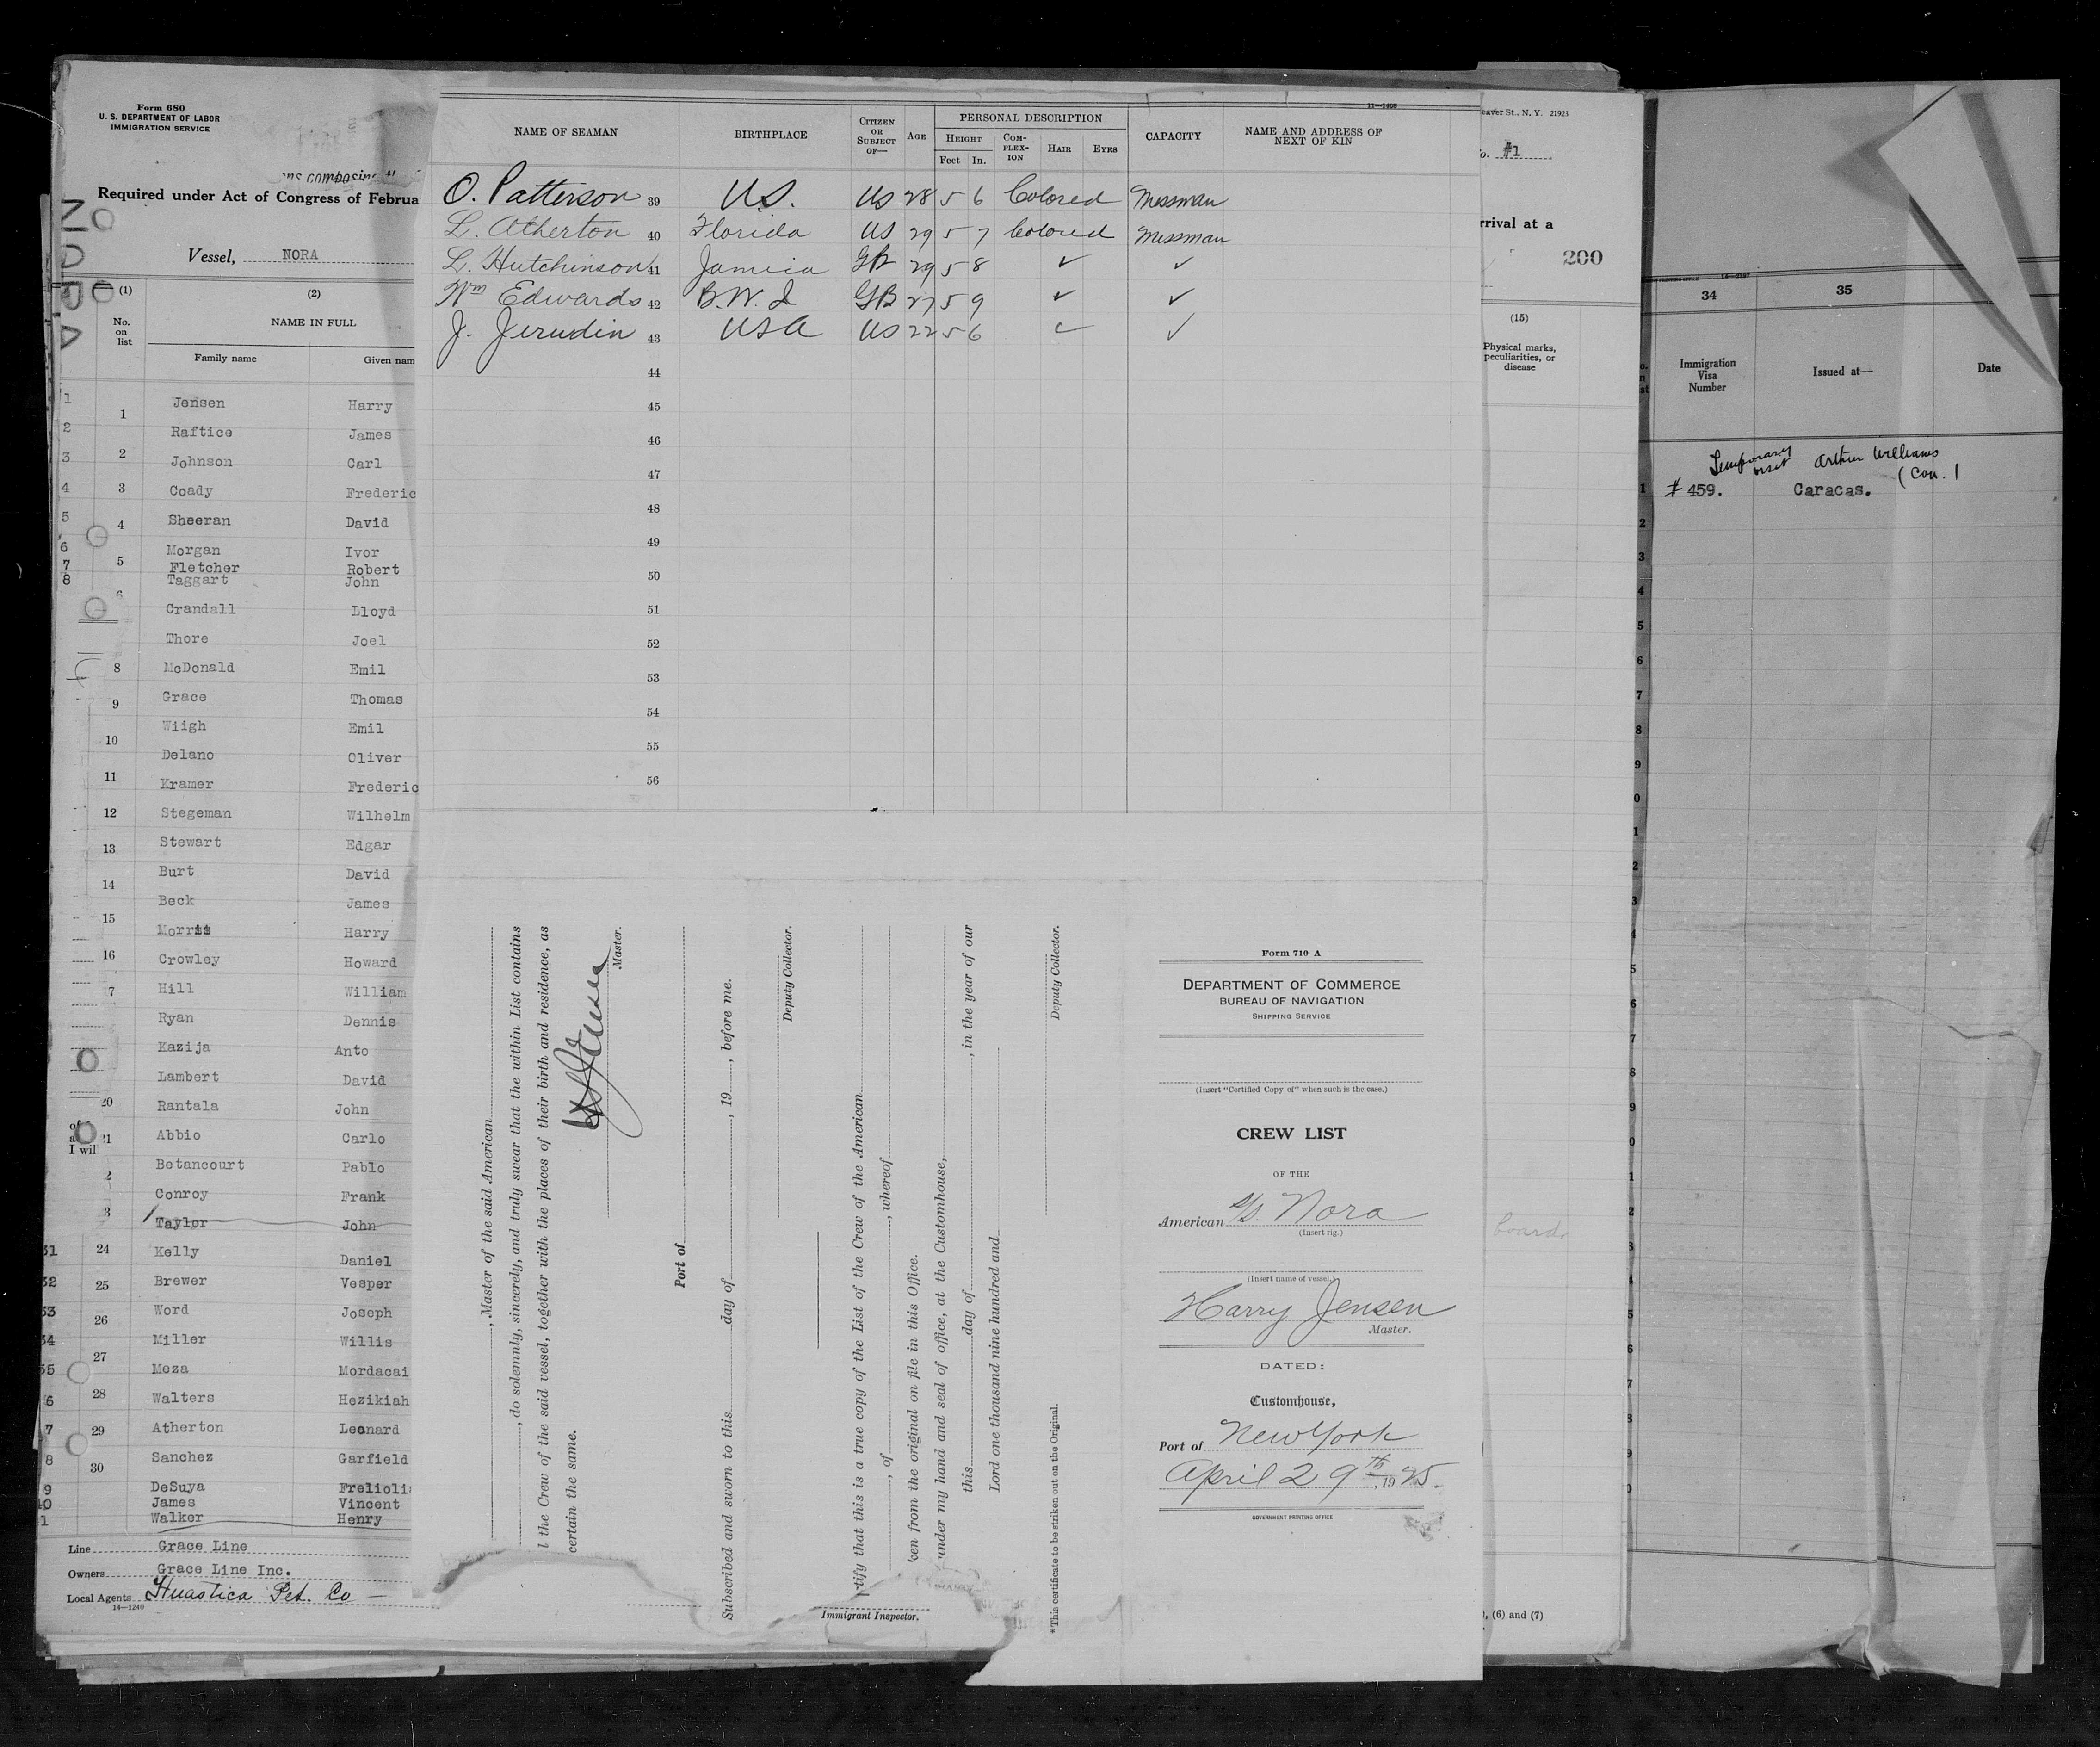 Form 680
U. S. DEPARTMENT OF LABOR
IMMIGRATION SERVICE
Required under Act of Congress of Februa
Vessel, NORA
NORA
(1) (2)
No. on list
NAME IN FULL
Family name Given nam
1 Jensen Harry
2 Raftice James
3 Johnson Carl
4 Coady Frederic
5 Sheeran David
6 Morgan Ivor
7 Fletcher Robert
8 Taggart John
Crandall Lloyd
Thore Joel
McDonald Emil
Grace Thomas
Wiigh Emil
Delano Oliver
Kramer Frederic
Stegeman Wilhelm
Stewart Edgar
Burt David
Beck James
Morris Harry
Crowley Howard
Hill William
Ryan Dennis
Kazija Anto
Lambert David
Rantala John
Abbio Carlo
Betancourt Pablo
Conroy Frank
Taylor John
31 Kelly Daniel
32 Brewer Vesper
33 Word Joseph
34 Miller Willis
35 Meza Mordacai
6 Walters Hezikiah
7 Atherton Leonard
8 Sanchez Garfield
9 DeSuya Frelioli
40 James Vincent
1 Walker Henry
Line Grace Line
Owners Grace Line Inc.
Local Agents Huastica Pet. Co —
14—1240
NAME OF SEAMAN
BIRTHPLACE
CITIZEN OR SUBJECT OF—
AGE
PERSONAL DESCRIPTION
HEIGHT
Feet In.
COM-PLEX-ION
HAIR
EYES
CAPACITY
NAME AND ADDRESS OF NEXT OF KIN
O. Patterson 39 U.S. US 28 5 6 Colored Messman
L. Atherton 40 Florida US 29 5 7 Colored Messman
L. Hutchinson 41 Jamica GB 29 5 8 ✓ ✓
Wm Edwards 42 B.W.I GB 27 5 9 ✓ ✓
J. Jerudin 43 USA US 22 5 6 ✓ ✓
44
45
46
47
48
49
50
51
52
53
54
55
56
, Master of the said American
, do solemnly, sincerely, and truly swear that the within List contains
l the Crew of the said vessel, together with the places of their birth and residence, as
certain the same.
Master.
Port of
Subscribed and sworn to this day of , 19 , before me.
Deputy Collector.
rtify that this is a true copy of the List of the Crew of the American
, of , whereof
ken from the original on file in this Office.
under my hand and seal of office, at the Customhouse,
this day of , in the year of our
Lord one thousand nine hundred and
Deputy Collector.
*This certificate to be striken out on the Original.
Immigrant Inspector.
Form 710 A
DEPARTMENT OF COMMERCE
BUREAU OF NAVIGATION
SHIPPING SERVICE
(Insert "Certified Copy of" when such is the case.)
CREW LIST
OF THE
American S/S. Nora
(Insert rig.)
(Insert name of vessel.)
Harry Jensen
Master.
DATED:
Customhouse,
Port of New York
April 29th, 1925.
GOVERNMENT PRINTING OFFICE
eaver St., N. Y. 21923
o. #1
rrival at a
200
(15)
Physical marks, peculiarities, or disease
board.
), (6) and (7)
34 35
Immigration Visa Number
Issued at—
Date
Temporary visit Arthur Williams
(Con.)
1 # 459. Caracas.